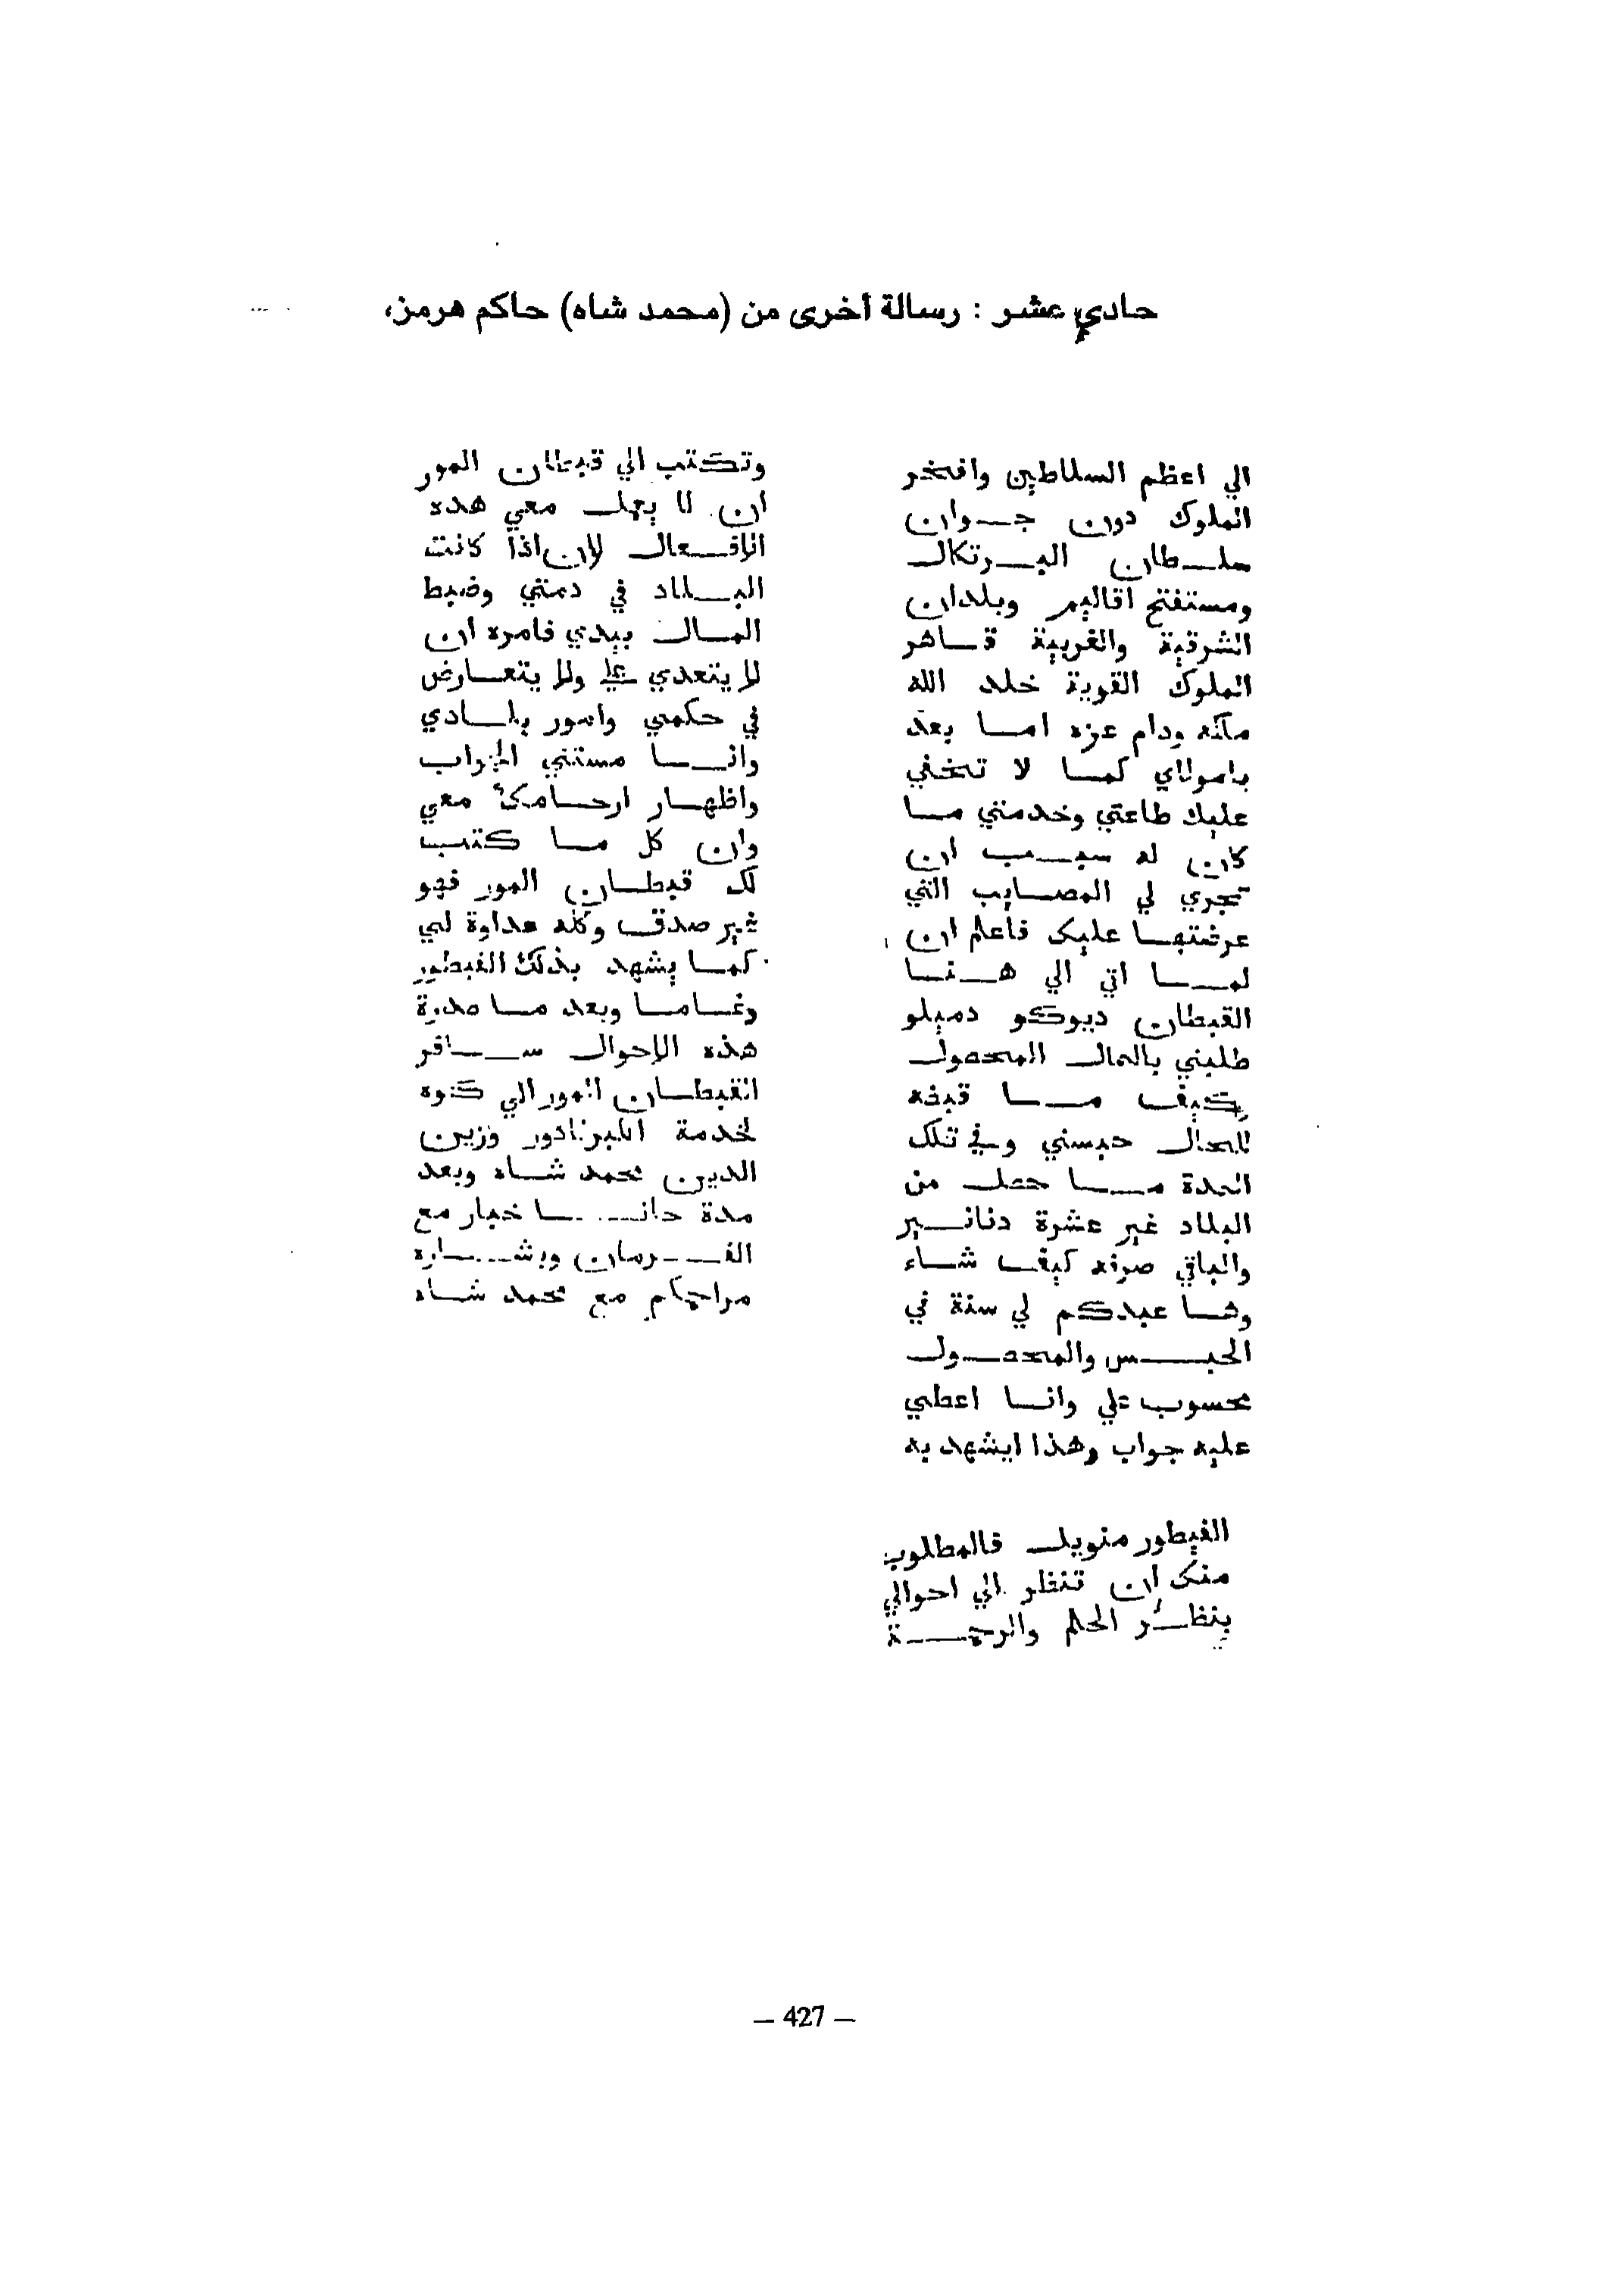 حادي عشر : رسالة أخرى من (محمد شاه) حاكم هرمز،
الي اعظم السلاطين وافخر
الملوك دون جوان
سلطان البرتكال
ومستفتح اقاليم وبلدان
الشرقية والغربية قاهر
الملوك القوية خلد الله
ملكه ودام عزه اما بعد
يامولاي كما لا تخفي
عليك طاعتي وخدمتي ما
كان له سبب ان
تجري لي المصايب التي
عرضتها عليك فاعلم ان
لما اتي الي هنا
القبطان ديوكو دميلو
طلبني بالمال المحصول
وكيف ما قبضه
للحال حبسني وفي تلك
المدة ما حصل من
البلاد غير عشرة دنانير
والباقي صرفه كيف شاء
وها عبدكم لي سنة في
الحبس والمحصول
محسوب علي وانا اعطي
عليه جواب وهذا ايشهد به
الفيطور منويل فالمطلوب
منك ان تنظر الي احوالي
بنظر الحلم والرحمة
وتكتب الي قبطان المور
ان لا يعمل معي هده
الافعال لان اذا كانت
البلاد في دمتي وضبط
المال بيدي فامره ان
لا يتعدي علي ولا يتعارض
في حكمي وامور بلادي
وانا مستني الجواب
واظهار ارحامك معي
وان كل ما كتب
لك قبطان المور فهو
غير صدق وكله عداوة لي
كما يشهد بذلك الفيطور
وغاما وبعد ما صدرة
هذه الاحوال سافر
القبطان المور الي كوه
لخدمة الكبرنادور وزين
الدين محمد شاه وبعد
مدة خبار مع
الفرمان وبشاره
مراحم مع محمد شاه
– 427 –